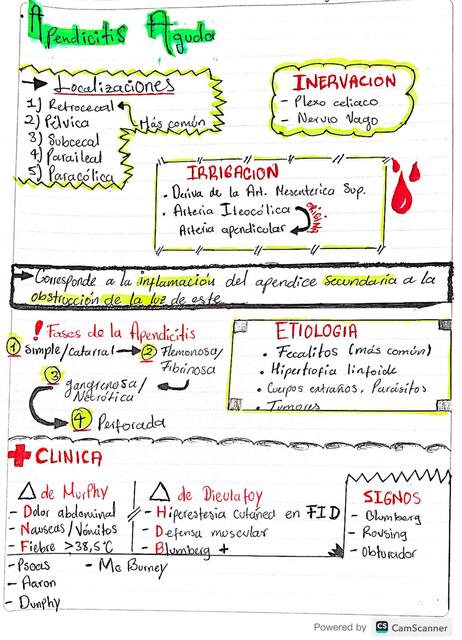 Apendicitis Aguda
Localizaciones
1) Retrocecal
2) Pélvica
Más común
3) Subcecal
4) Paraileal
5) Paracólica
INERVACION
- Plexo celiaco
- Nervio Vago
IRRIGACION
• Deriva de la Art. Mesenterica Sup.
• Arteria Ileocólica
ORIGINA
Arteria apendicular
Corresponde a la inflamación del apendice secundaria a la
obstrucción de la luz de este
! Fases de la Apendicitis
1 Simple/Catarral → 2 Flemonosa/
Fibrinosa
3 gangrenosa/
Necrótica
4 Perforada
ETIOLOGIA
• Fecalitos (más común)
• Hipertrofia linfoide
• Cuerpos extraños, Parásitos
• Tumores
+ CLINICA
△ de Murphy
- Dolor abdominal
- Nauseas/Vómitos
- Fiebre >38,5°C
△ de Dieulafoy
- Hiperestesia Cutánea en FID
- Defensa muscular
- Blumberg +
SIGNOS
- Blumberg
- Rovsing
- Obturador
- Psoas - Mc Burney
- Aaron
- Dunphy
Powered by CS CamScanner